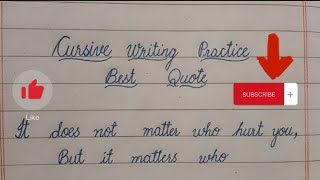 Cursive Writing Practice
Best Quote
Like
SUBSCRIBE +
It does not matter who hurt you,
But it matters who